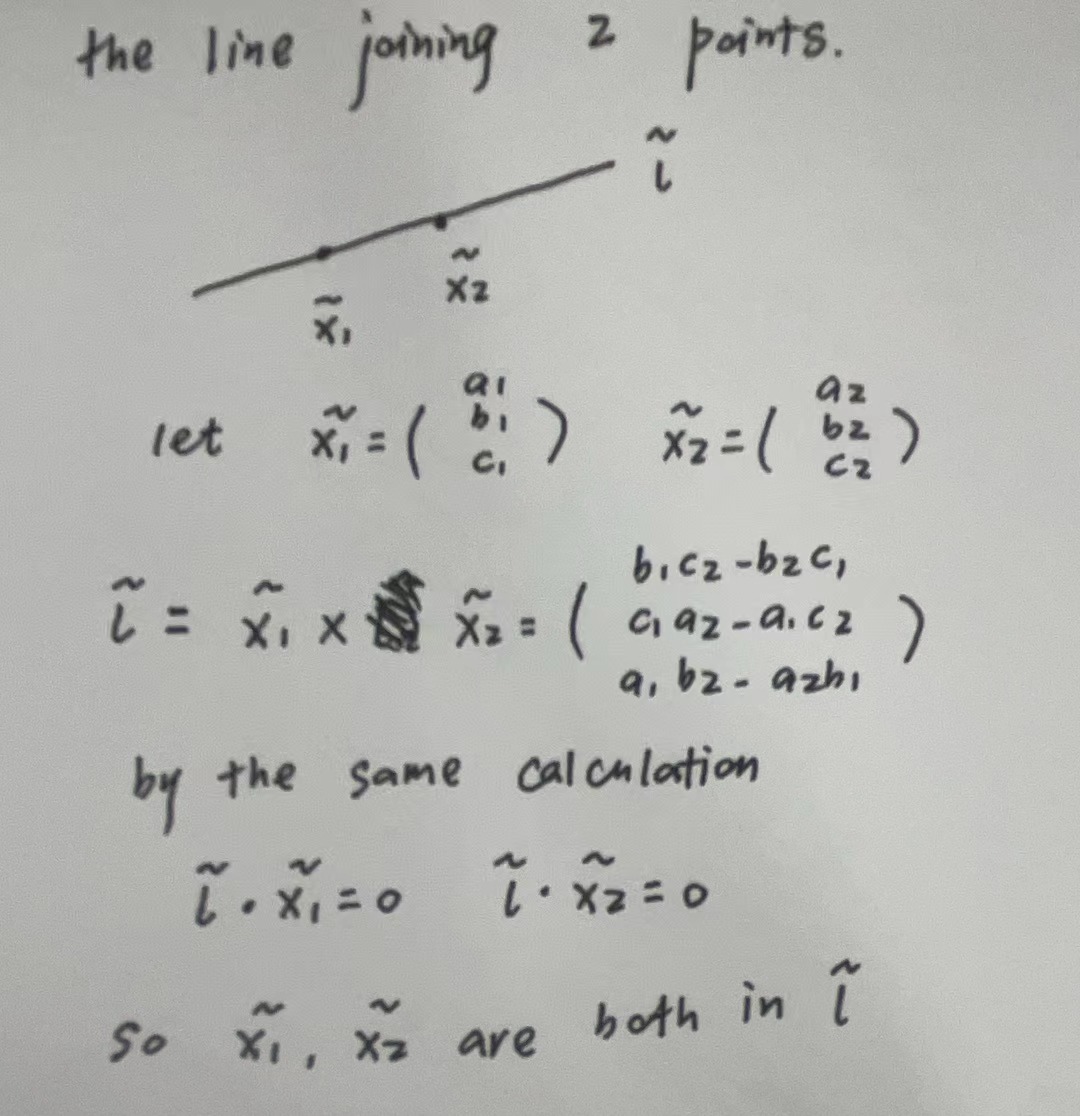 the line joining 2 points.
l̃
x̃₂
x̃₁
let x̃₁ = ( a₁ b₁ c₁ ) x̃₂ = ( a₂ b₂ c₂ )
l̃ = x̃₁ × x̃₂ = ( b₁c₂ - b₂c₁ c₁a₂ - a₁c₂ a₁b₂ - a₂b₁ )
by the same calculation
l̃ · x̃₁ = 0 l̃ · x̃₂ = 0
so x̃₁, x̃₂ are both in l̃